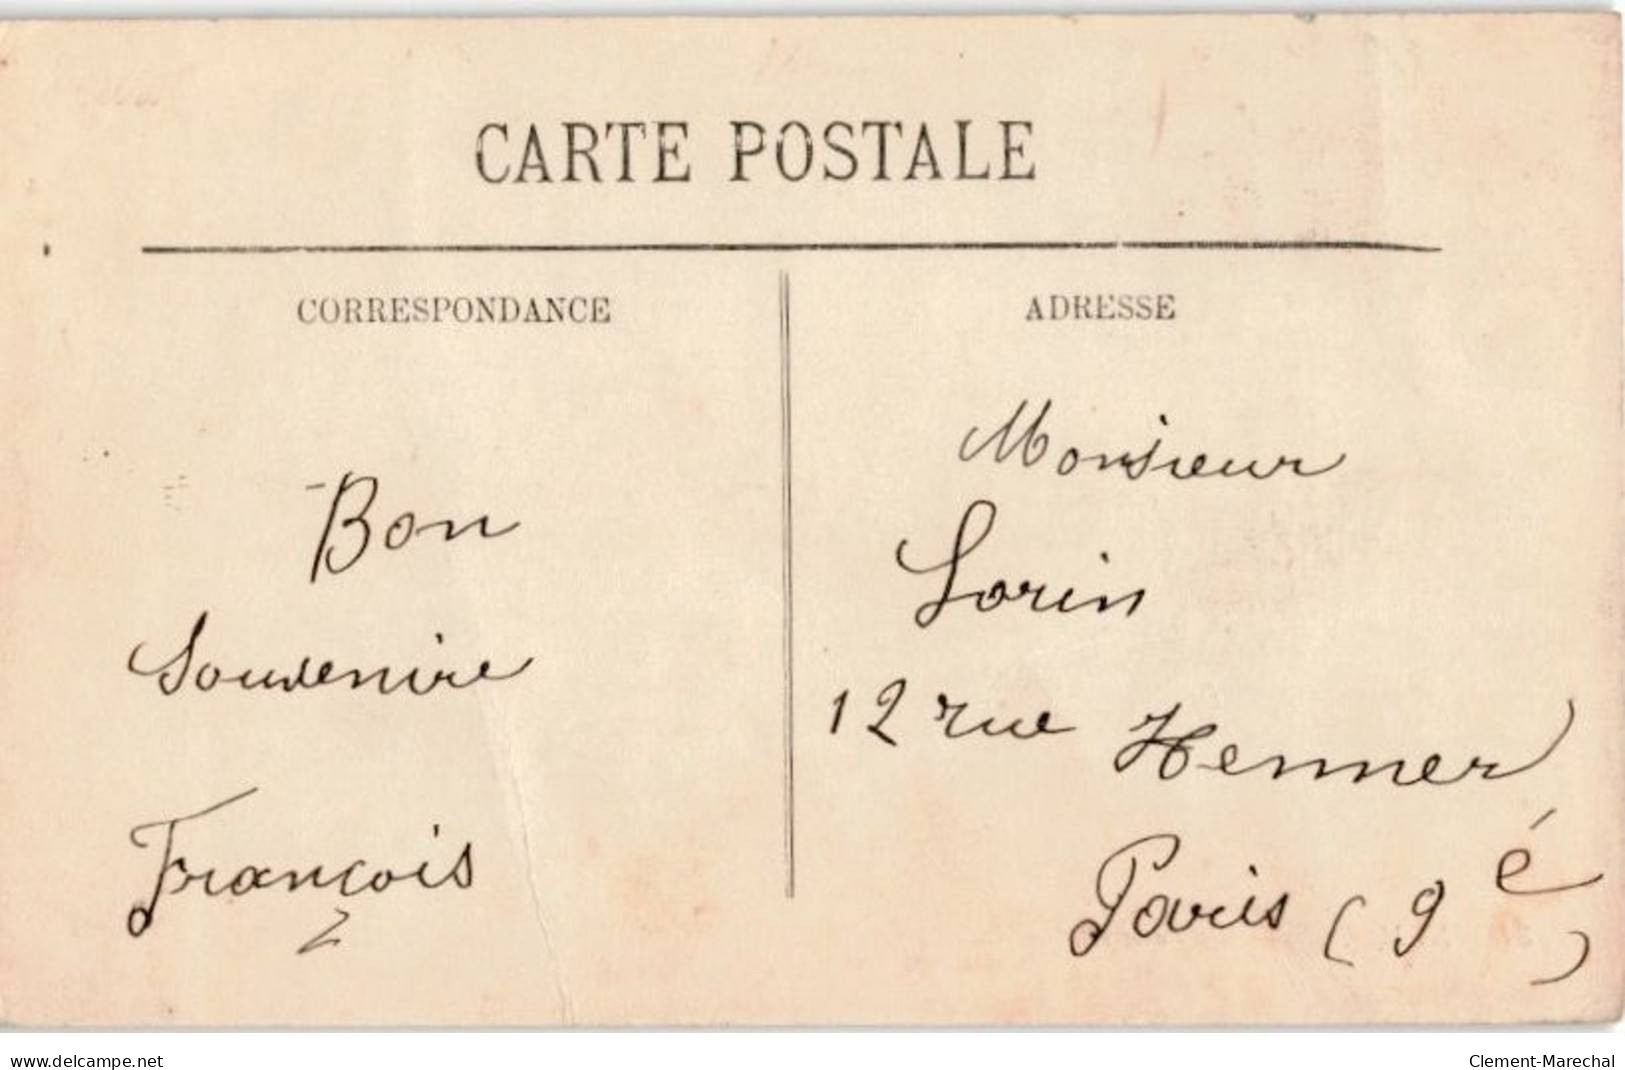 CARTE POSTALE
CORRESPONDANCE
ADRESSE
Bon
Souvenire
François
Monsieur
Lorin
12 rue Henner
Paris (9é)
www.delcampe.net
Clement-Marechal